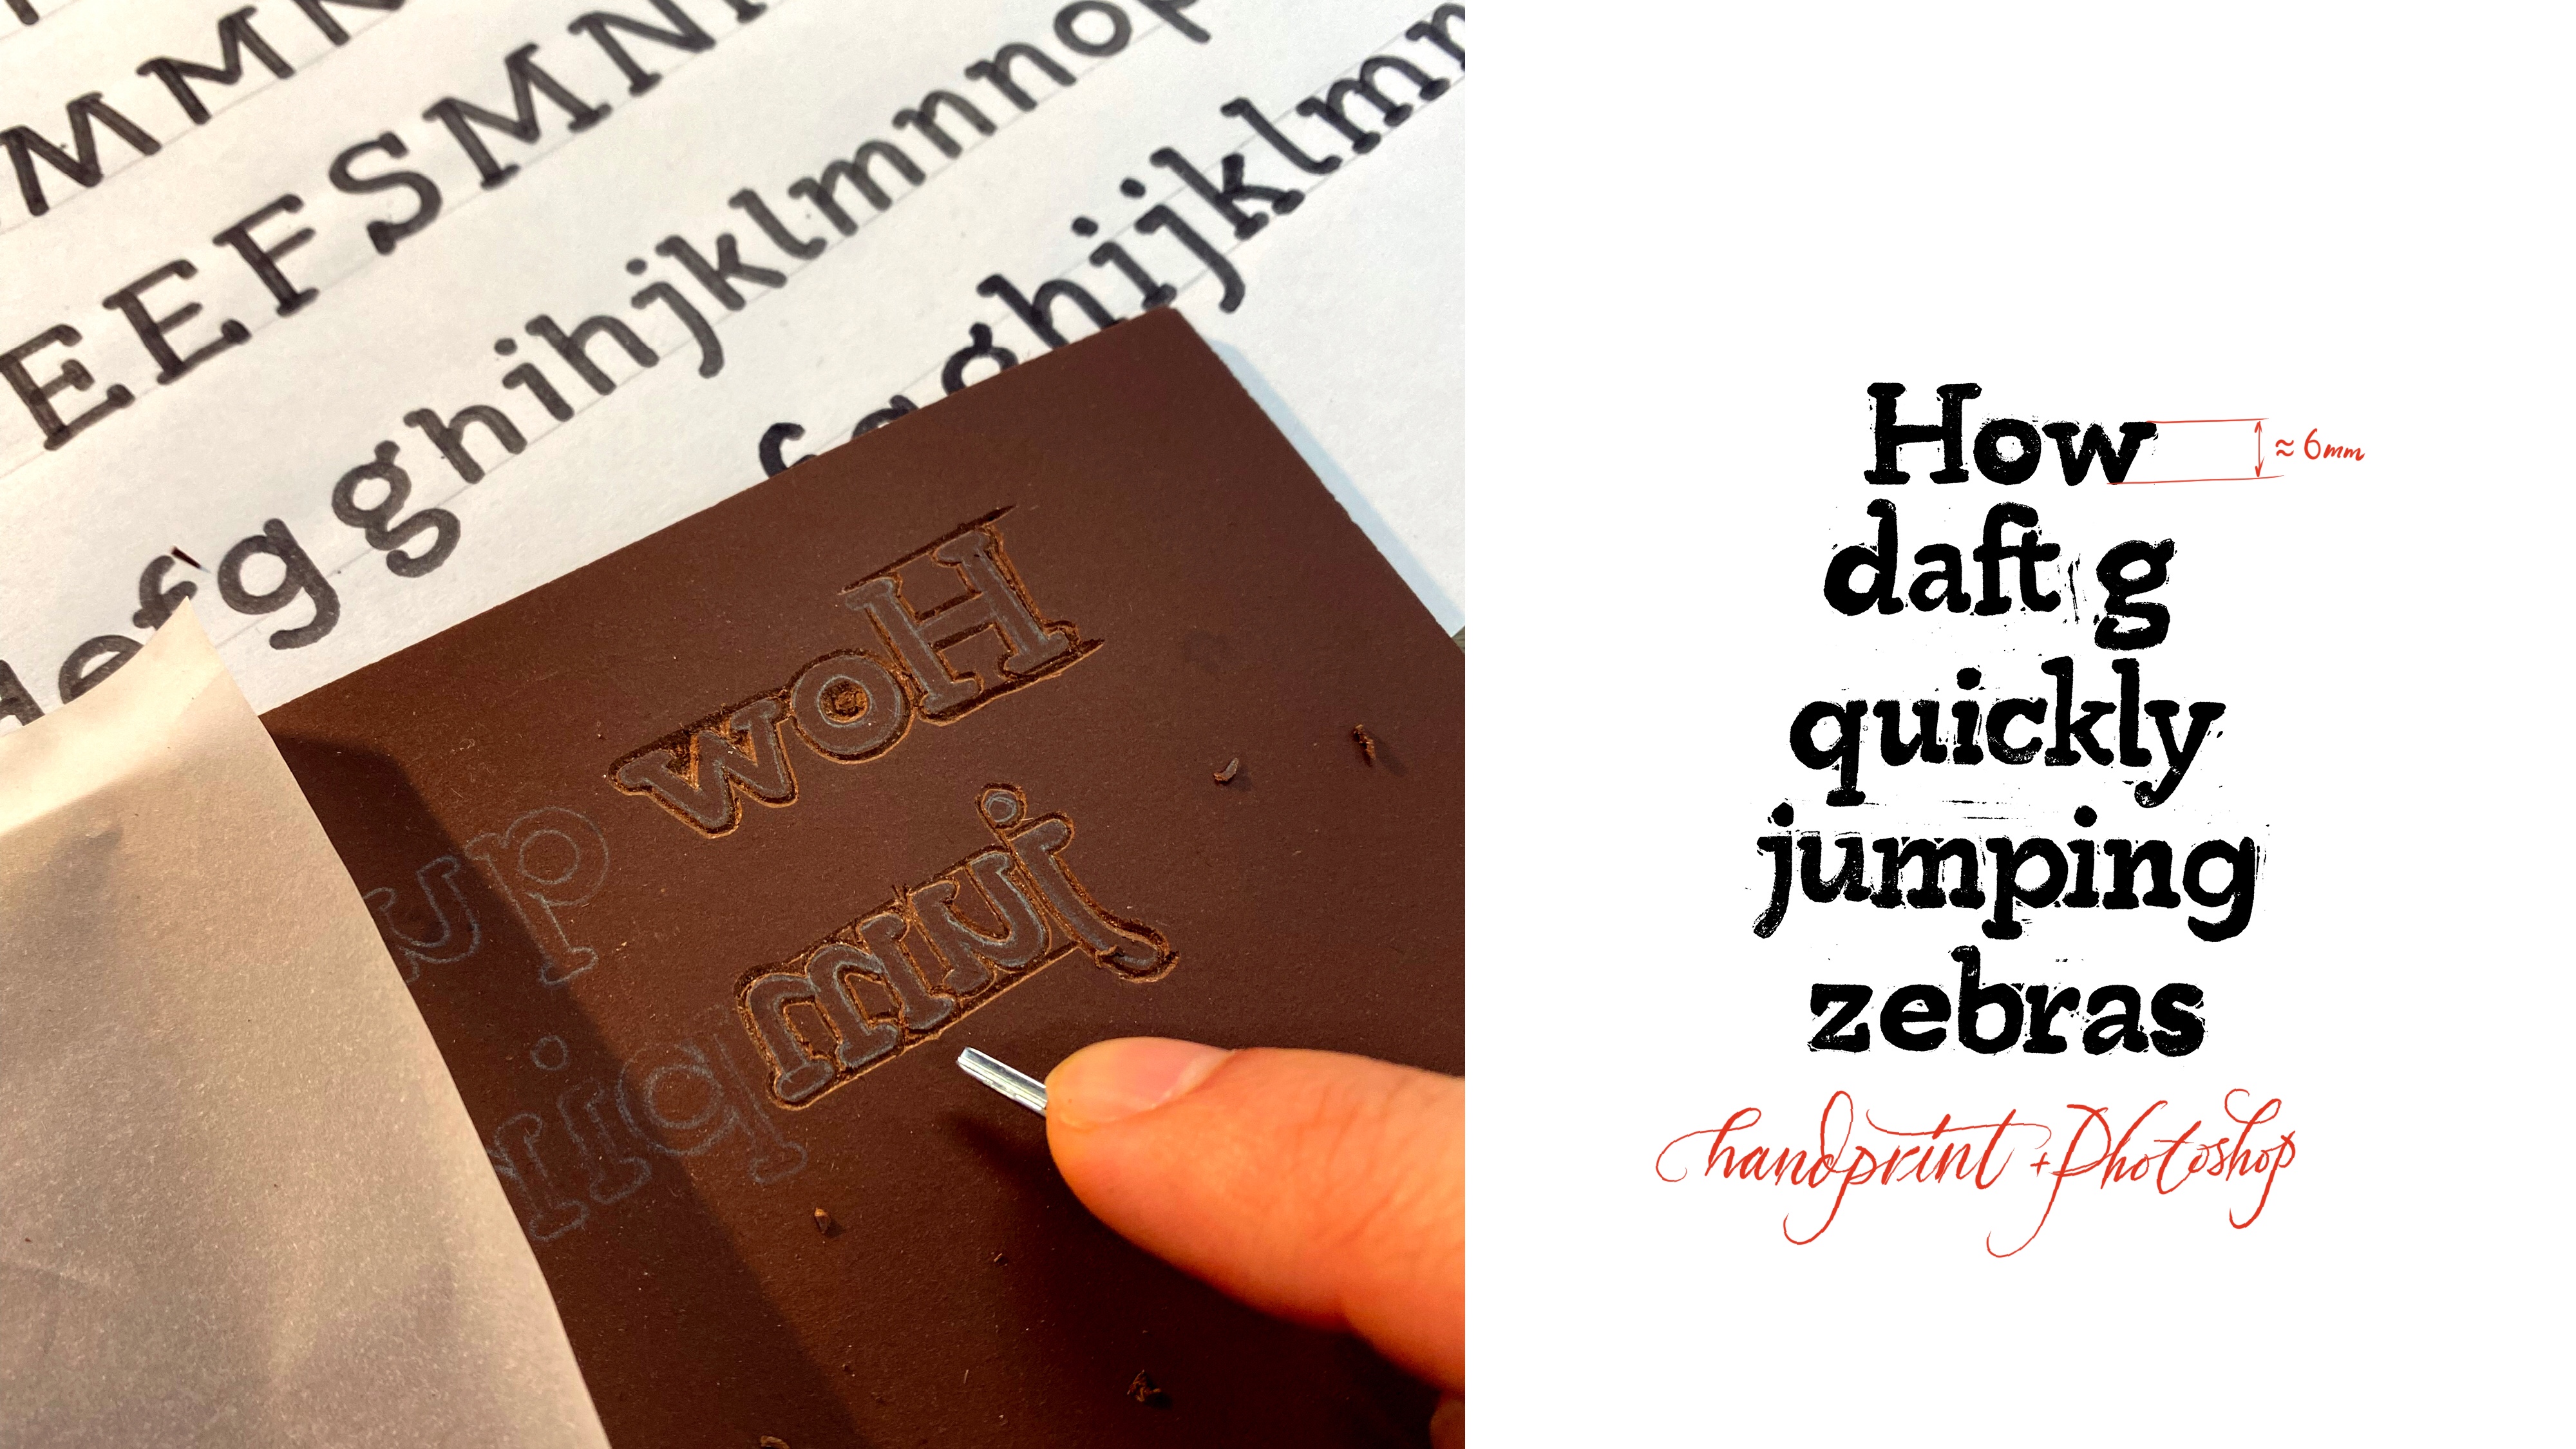 MMM
EEFSMN
efgghihjklmnnop
f aghijjklmn
How
jum
up
pin
How
≈6mm
daft g
quickly
jumping
zebras
handprint + Photoshop